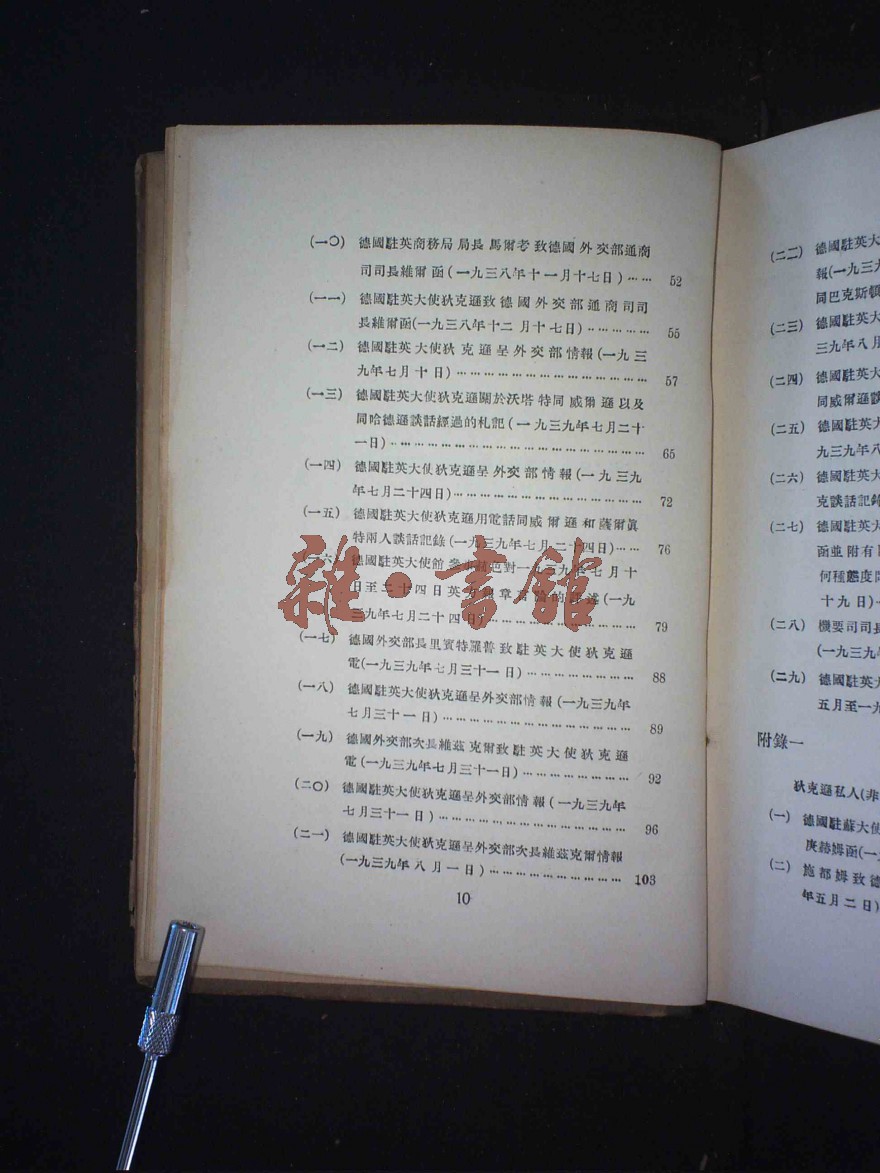 (一〇) 德國駐英商務局局長馬爾老致德國外交部通商
司司長維爾函(一九三八年十一月十七日)…… 52
(一一) 德國駐英大使狄克遜致德國外交部通商司司
長維爾函(一九三八年十二月十七日)………… 55
(一二) 德國駐英大使狄克遜呈外交部情報(一九三
九年七月十日)……………………………… 57
(一三) 德國駐英大使狄克遜關於沃塔特同威爾遜以及
同哈德遜談話經過的札記(一九三九年七月二十
一日)………………………………………… 65
(一四) 德國駐英大使狄克遜呈外交部情報(一九三九
年七月二十四日)……………………………… 72
(一五) 德國駐英大使狄克遜用電話同威爾遜和薩爾眞
特兩人談話記錄(一九三九年七月二十四日)…… 76
(一六) 德國駐英大使館 對一九三九年七月十
日至二十四日英 的 述(一九
三九年七月二十四日)………………………… 79
(一七) 德國外交部長里賓特羅普致駐英大使狄克遜
電(一九三九年七月三十一日)………………… 88
(一八) 德國駐英大使狄克遜呈外交部情報(一九三九年
七月三十一日)………………………………… 89
(一九) 德國外交部次長維茲克爾致駐英大使狄克遜
電(一九三九年七月三十一日)………………… 92
(二〇) 德國駐英大使狄克遜呈外交部情報(一九三九年
七月三十一日)………………………………… 96
(二一) 德國駐英大使狄克遜呈外交部次長維茲克爾情報
(一九三九年八月一日)……………………… 103
10
雜·書館
(二二) 德國駐英大
報(一九三九
同巴克斯頓
(二三) 德國駐英大
三九年八月
(二四) 德國駐英大
同威爾遜談
(二五) 德國駐英大
九三九年八
(二六) 德國駐英大
克談話記錄
(二七) 德國駐英大
函並附有
何種態度
十九日)
(二八) 機要司司長
(一九三九年
(二九) 德國駐英大
五月至一九
附錄一
狄克遜私人(非
(一) 德國駐蘇大使
庚赫姆函(一
(二) 施都姆致德
年五月二日)